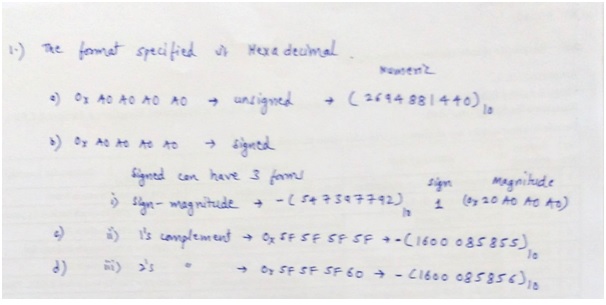 1.) The format specified is Hexa decimal.
Numeric
a) 0x A0 A0 A0 A0 → unsigned → (2694881440)₁₀
b) 0x A0 A0 A0 A0 → signed
Signed can have 3 forms
sign Magnitude
i) Sign-magnitude → -(547397792)₁₀ 1 (0x 20 A0 A0 A0)
c) ii) 1's complement → 0x 5F 5F 5F 5F → -(1600 085855)₁₀
d) iii) 2's " → 0x 5F 5F 5F 60 → -(1600 085856)₁₀